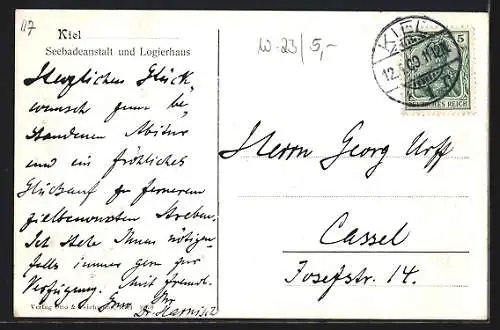 117
Kiel
Seebadeanstalt und Logierhaus
Herzlichen Glück
wunsch zum be-
standenen Abitur
und ein fröhliches
Glückauf zu fernerem
zielbewussten Streben.
Ich stehe Ihnen nötigen-
falls immer gern zur
Verfügung. Mit freundl.
Gruss Ihr
Dr. Harnisch
Verlag
W-23/5,-
KIEL
12. 09. 11-12
5
DEUTSCHES REICH
Herrn Georg Urff
Cassel
Josefstr. 14.